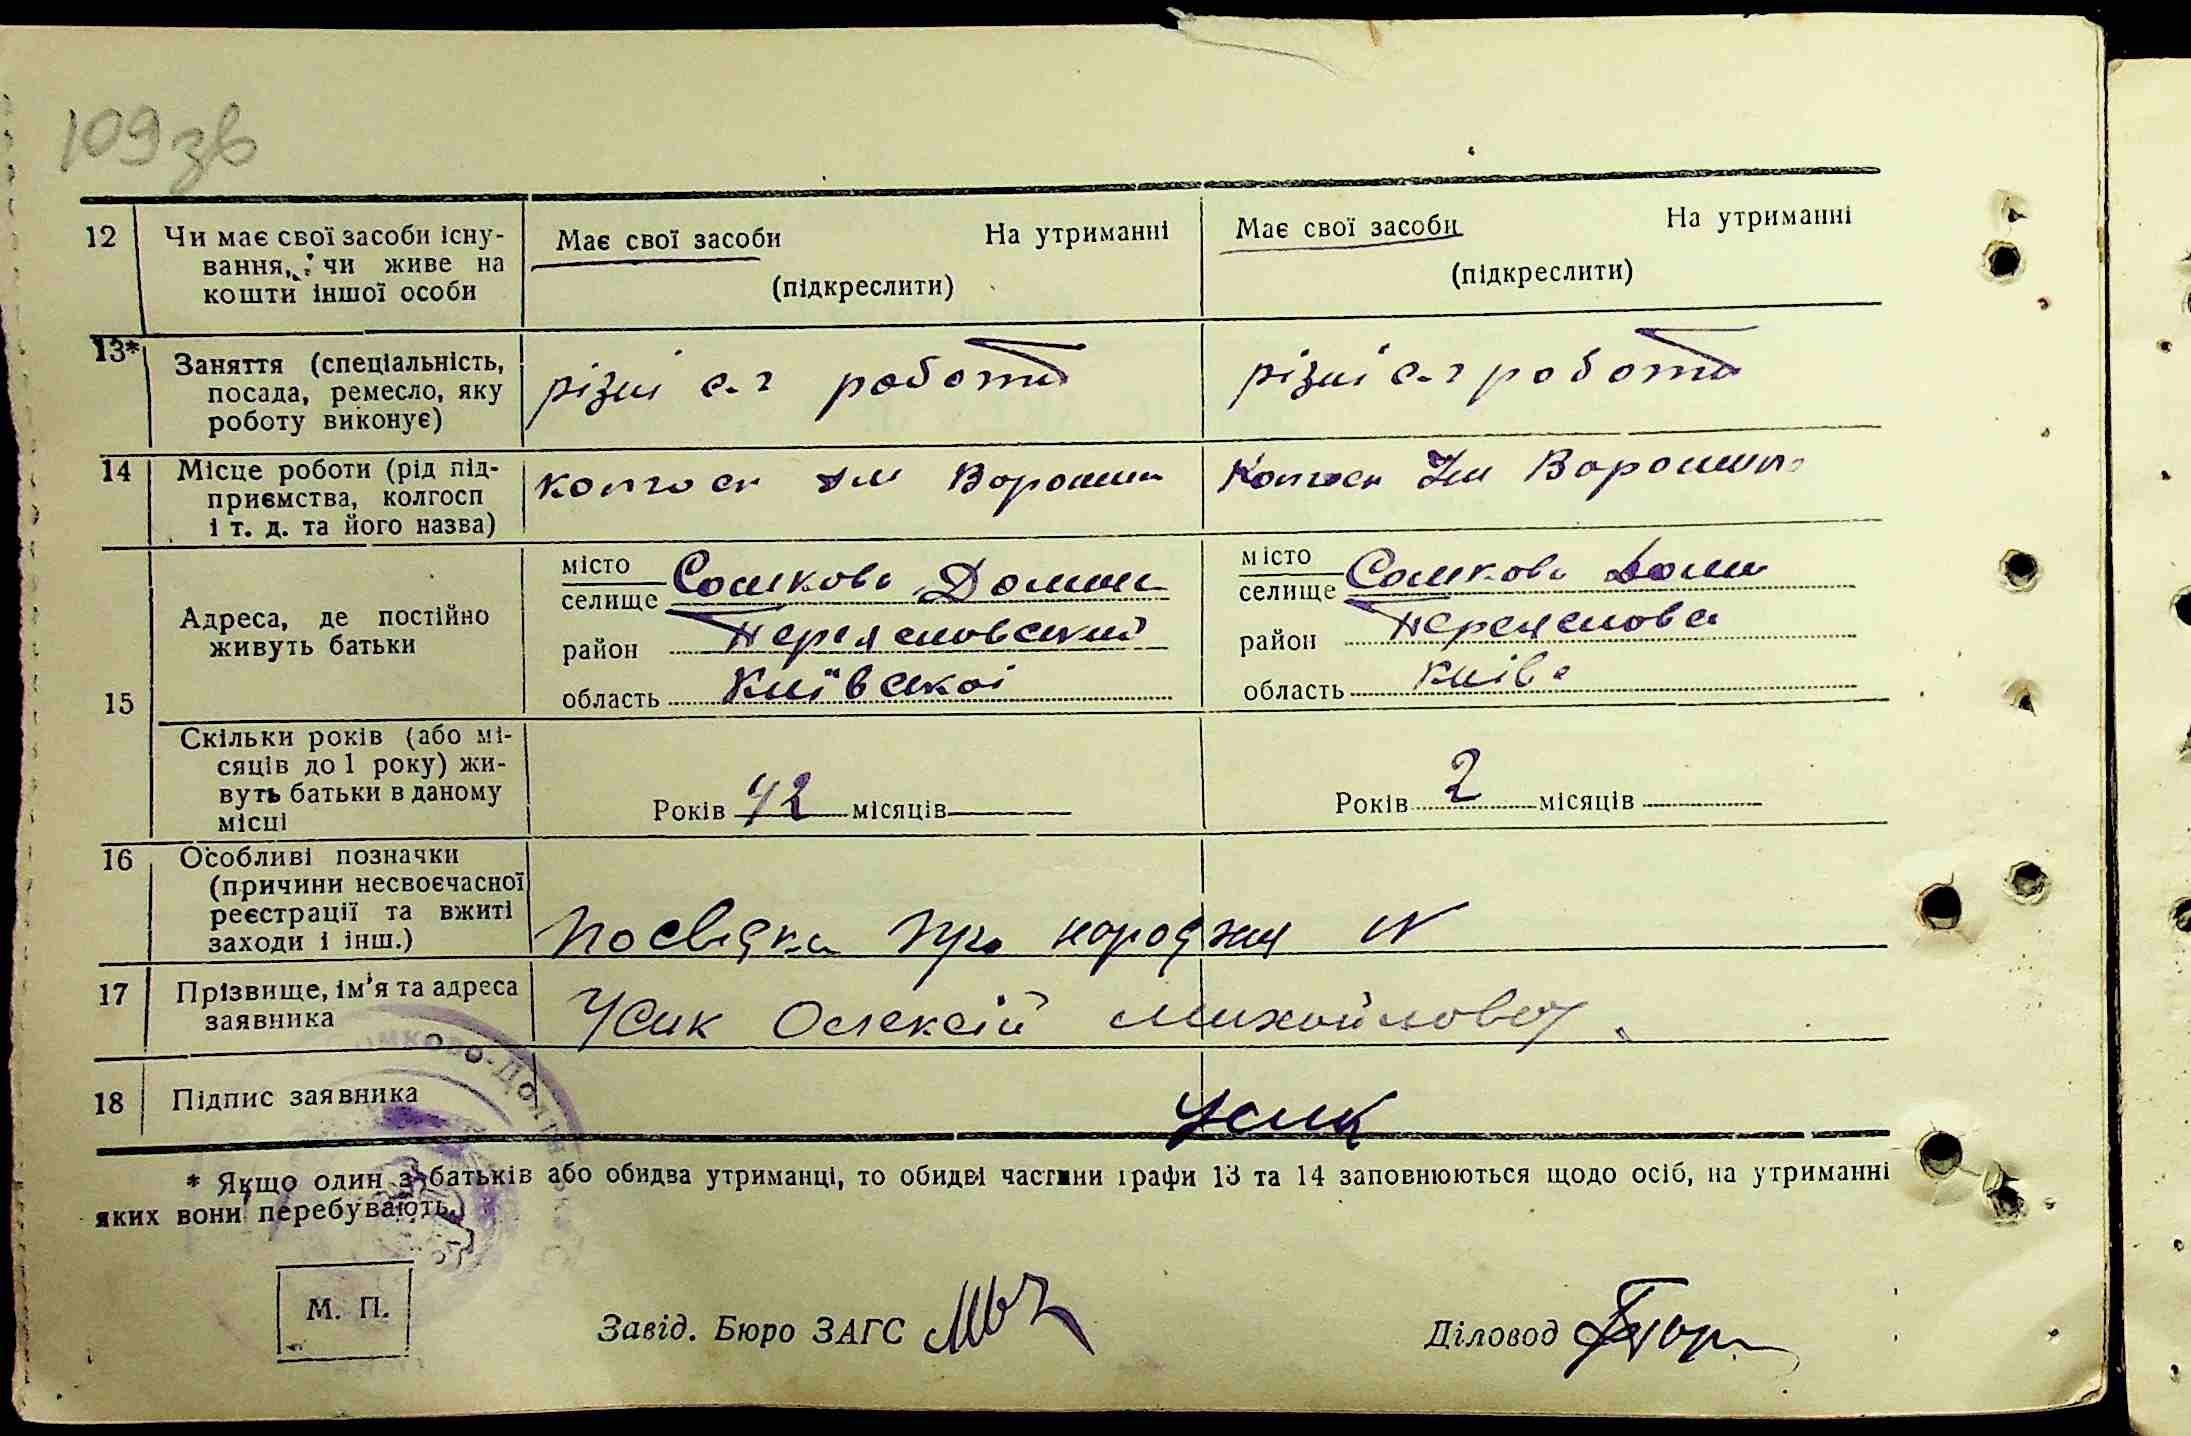 109 зв
12 Чи має свої засоби існу-
вання, чи живе на
кошти іншої особи
Має свої засоби На утриманні
(підкреслити)
Має свої засоби На утриманні
(підкреслити)
13* Заняття (спеціальність,
посада, ремесло, яку
роботу виконує)
різні с-г роботи
різні с-г роботи
14 Місце роботи (рід під-
приємства, колгосп
і т. д. та його назва)
колгосп ім Ворошил
Колгосп Ім Ворошил
15 Адреса, де постійно
живуть батьки
місто
селище Сомкова Долина
район Переяславський
область Київської
місто
селище Сомкова Долин
район Переяславс
область Київс
Скільки років (або мі-
сяців до 1 року) жи-
вуть батьки в даному
місці
Років 42 місяців
Років 2 місяців
16 Особливі позначки
(причини несвоєчасної
реєстрації та вжиті
заходи і інш.)
Посвідка про народжня №
17 Прізвище, ім'я та адреса
заявника
Усик Олексій Михайлович
18 Підпис заявника
Усик
* Якщо один з батьків або обидва утриманці, то обидві частини графи 13 та 14 заповнюються щодо осіб, на утриманні
яких вони перебувають.
М. П.
Завід. Бюро ЗАГС
Діловод